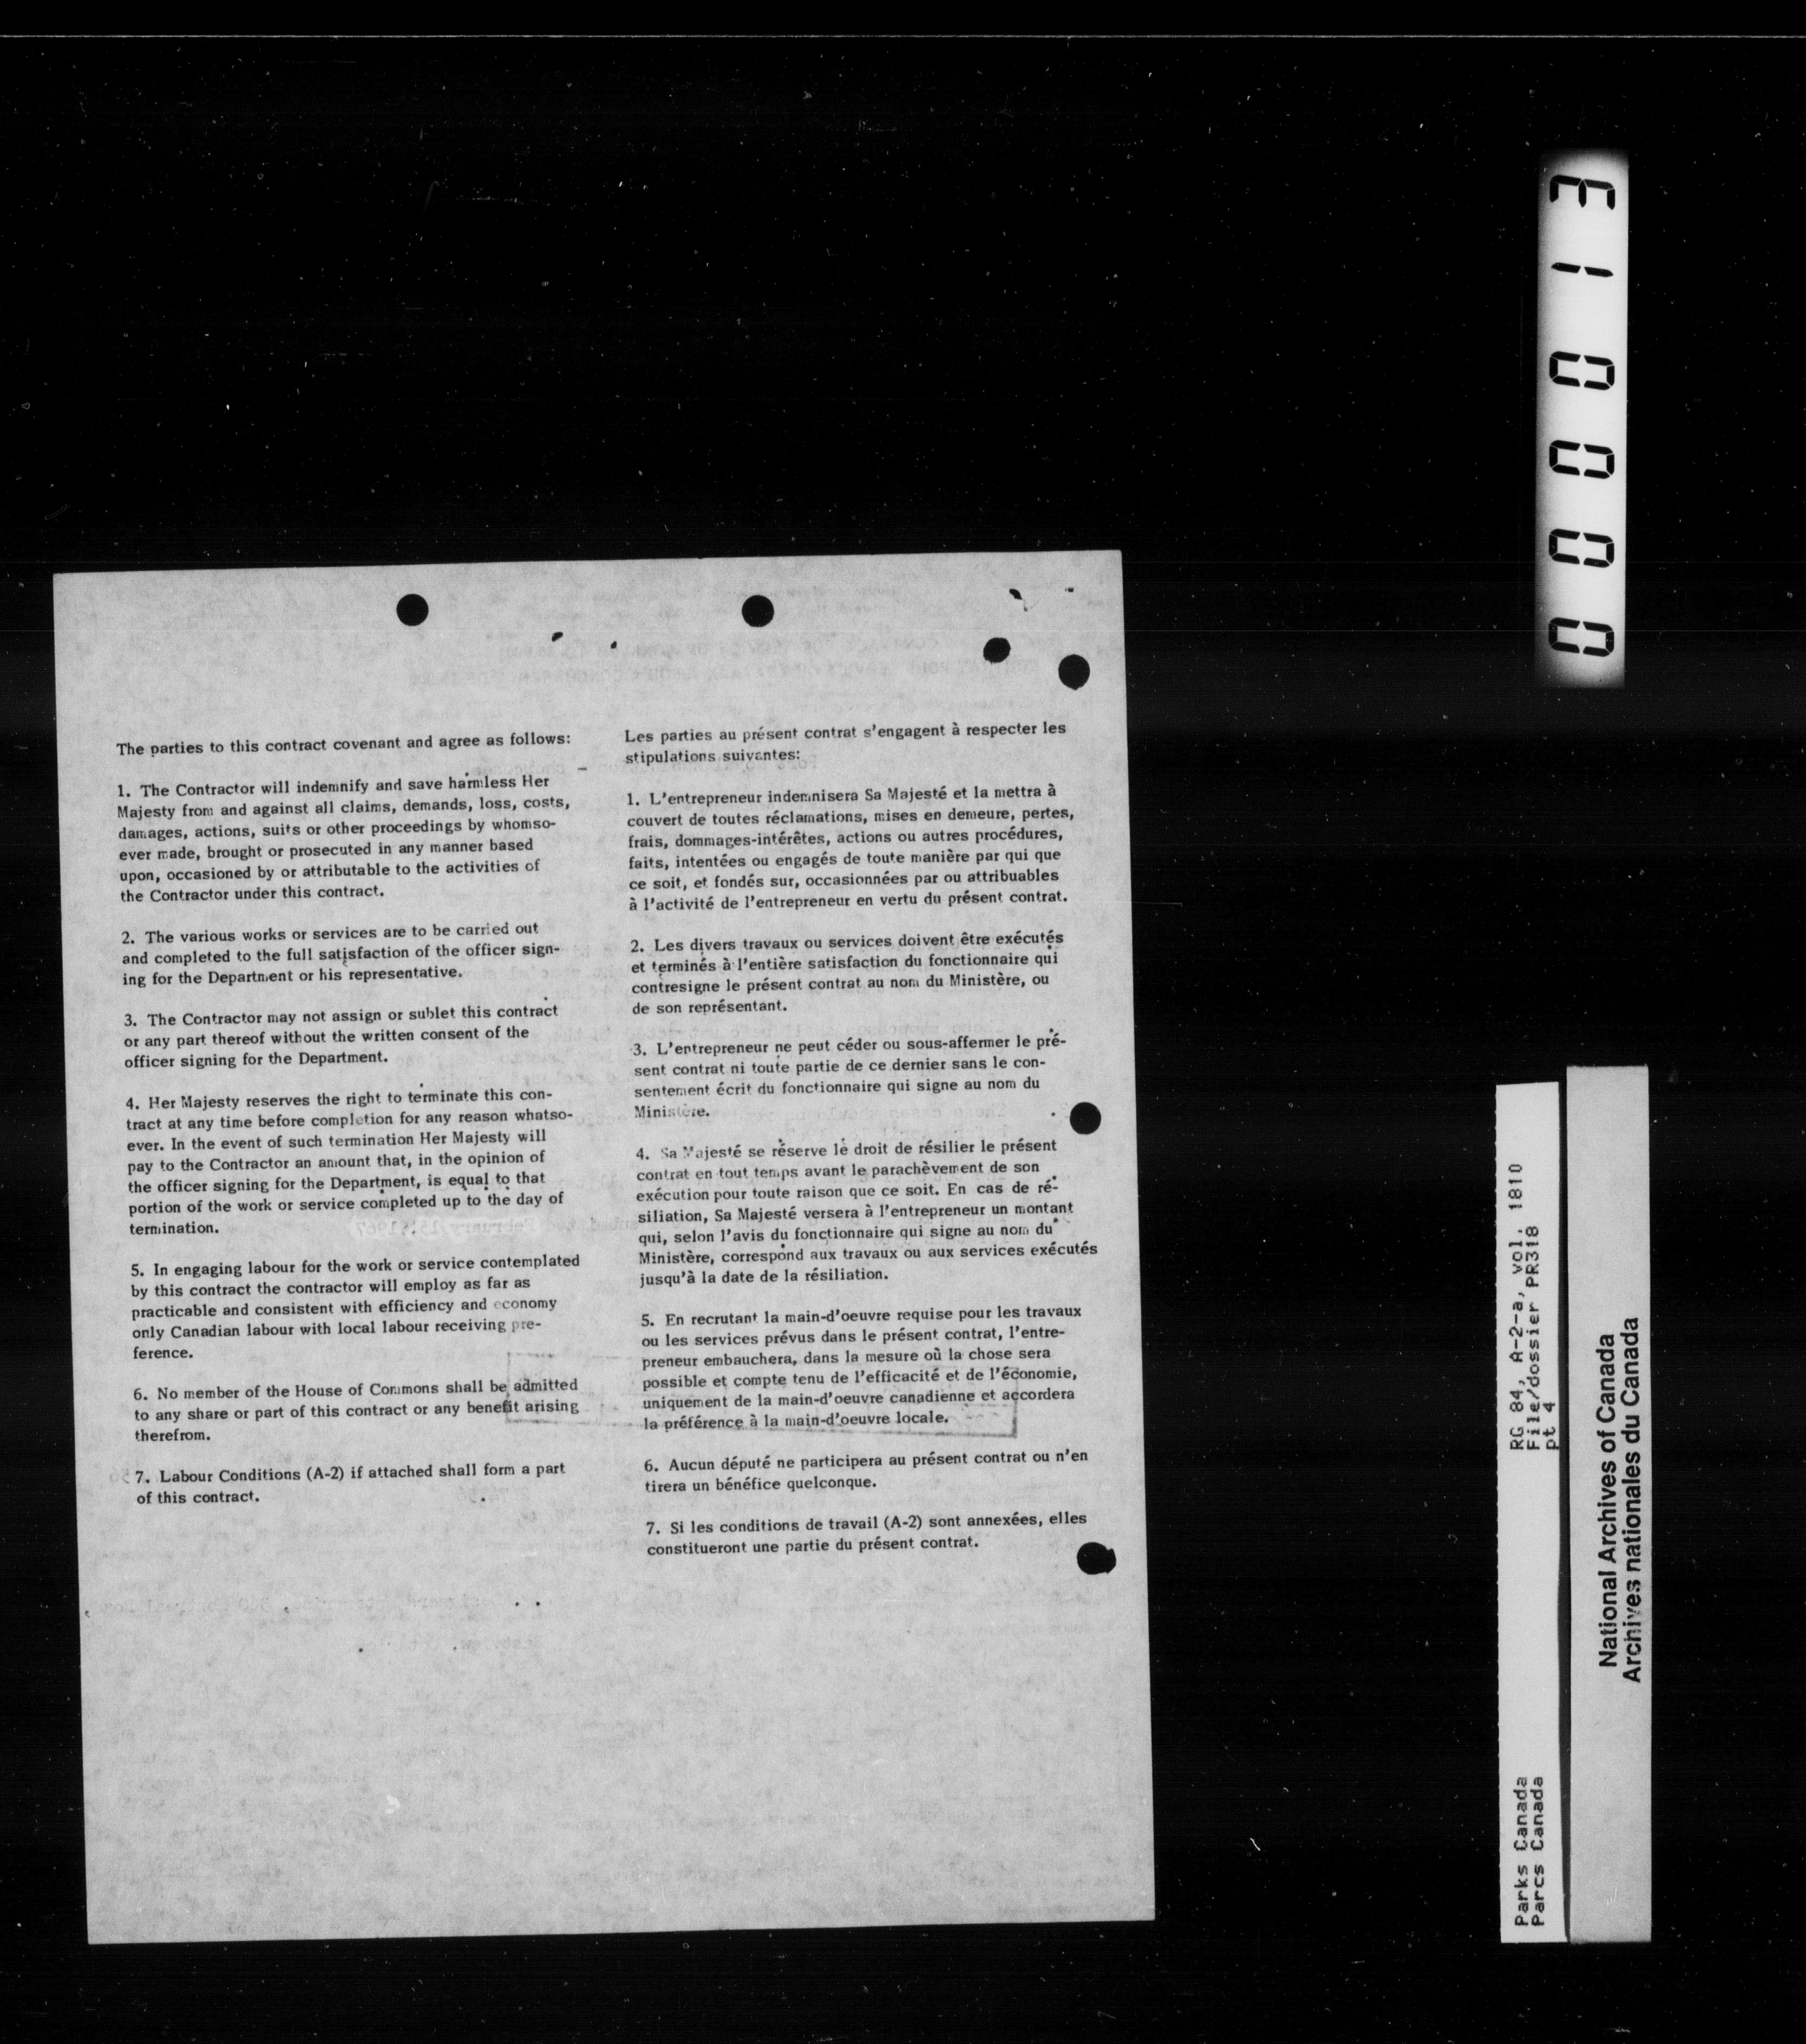 The parties to this contract covenant and agree as follows:
1. The Contractor will indemnify and save harmless Her
Majesty from and against all claims, demands, loss, costs,
damages, actions, suits or other proceedings by whomso-
ever made, brought or prosecuted in any manner based
upon, occasioned by or attributable to the activities of
the Contractor under this contract.
2. The various works or services are to be carried out
and completed to the full satisfaction of the officer sign-
ing for the Department or his representative.
3. The Contractor may not assign or sublet this contract
or any part thereof without the written consent of the
officer signing for the Department.
4. Her Majesty reserves the right to terminate this con-
tract at any time before completion for any reason whatso-
ever. In the event of such termination Her Majesty will
pay to the Contractor an amount that, in the opinion of
the officer signing for the Department, is equal to that
portion of the work or service completed up to the day of
termination.
5. In engaging labour for the work or service contemplated
by this contract the contractor will employ as far as
practicable and consistent with efficiency and economy
only Canadian labour with local labour receiving pre-
ference.
6. No member of the House of Commons shall be admitted
to any share or part of this contract or any benefit arising
therefrom.
7. Labour Conditions (A-2) if attached shall form a part
of this contract.
Les parties au présent contrat s'engagent à respecter les
stipulations suivantes:
1. L'entrepreneur indemnisera Sa Majesté et la mettra à
couvert de toutes réclamations, mises en demeure, pertes,
frais, dommages-intérêtes, actions ou autres procédures,
faits, intentées ou engagés de toute manière par qui que
ce soit, et fondés sur, occasionnées par ou attribuables
à l'activité de l'entrepreneur en vertu du présent contrat.
2. Les divers travaux ou services doivent être exécutés
et terminés à l'entière satisfaction du fonctionnaire qui
contresigne le présent contrat au nom du Ministère, ou
de son représentant.
3. L'entrepreneur ne peut céder ou sous-affermer le pré-
sent contrat ni toute partie de ce dernier sans le con-
sentement écrit du fonctionnaire qui signe au nom du
Ministère.
4. Sa Majesté se réserve le droit de résilier le présent
contrat en tout temps avant le parachèvement de son
exécution pour toute raison que ce soit. En cas de ré-
siliation, Sa Majesté versera à l'entrepreneur un montant
qui, selon l'avis du fonctionnaire qui signe au nom du
Ministère, correspond aux travaux ou aux services exécutés
jusqu'à la date de la résiliation.
5. En recrutant la main-d'oeuvre requise pour les travaux
ou les services prévus dans le présent contrat, l'entre-
preneur embauchera, dans la mesure où la chose sera
possible et compte tenu de l'efficacité et de l'économie,
uniquement de la main-d'oeuvre canadienne et accordera
la préférence à la main-d'oeuvre locale.
6. Aucun député ne participera au présent contrat ou n'en
tirera un bénéfice quelconque.
7. Si les conditions de travail (A-2) sont annexées, elles
constitueront une partie du présent contrat.
000013
Parks Canada
Parcs Canada
RG 84, A-2-a, vol. 1810
File/dossier PR318
pt 4
National Archives of Canada
Archives nationales du Canada